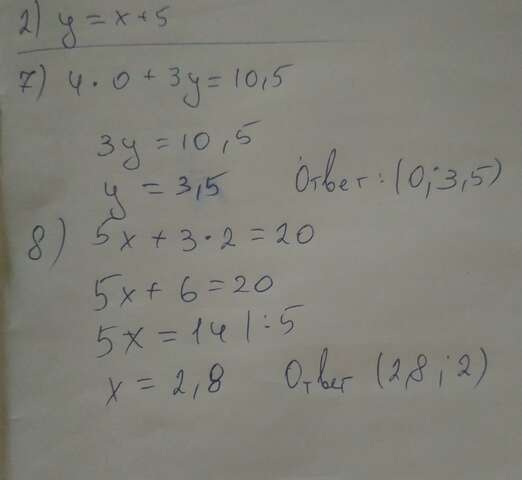 2) y = x + 5
7) 4 · 0 + 3y = 10,5
3y = 10,5
y = 3,5 Ответ: (0; 3,5)
8) 5x + 3 · 2 = 20
5x + 6 = 20
5x = 14 | : 5
x = 2,8 Ответ (2,8 ; 2)